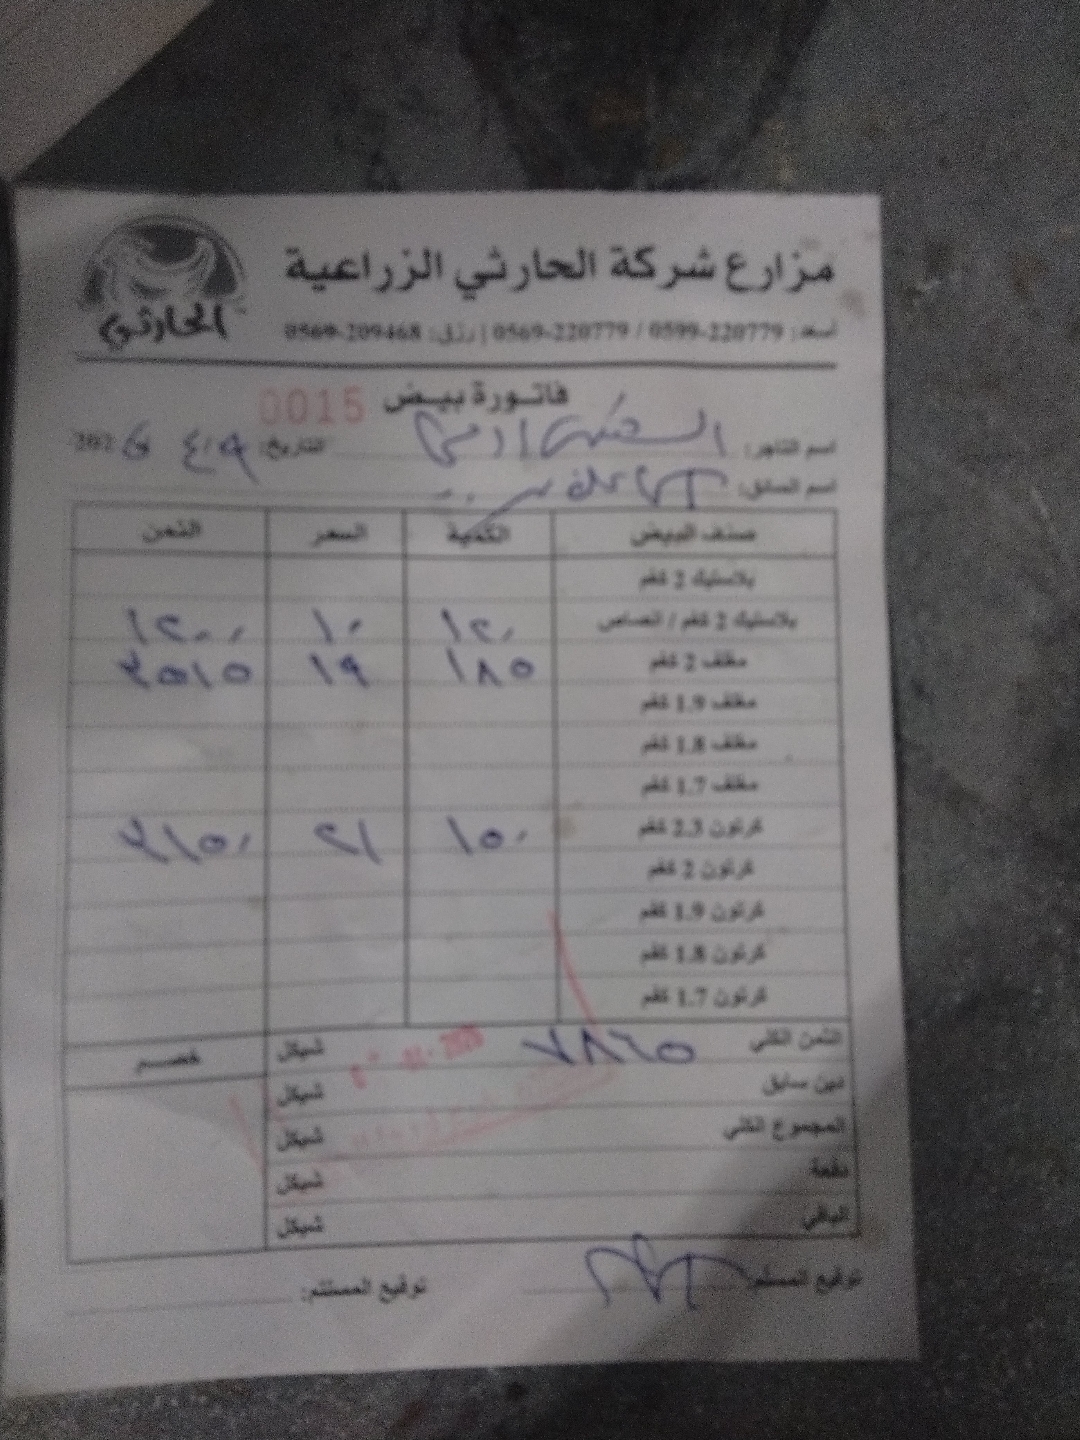 الحارثي
مزارع شركة الحارثي الزراعية
أسعد: 0599-220779 / 0569-220779 | رزق: 0569-209468
فاتورة بيض 0015
اسم التاجر: التاريخ: 202
اسم السائق:
صنف البيض الكمية السعر الثمن
بلاستيك 2 كغم
بلاستيك 2 كغم / انصاص ١٢٠ ١٠ ١٢٠٠
مغلف 2 كغم ١٨٥ ١٩ ٣٥١٥
مغلف 1.9 كغم
مغلف 1.8 كغم
مغلف 1.7 كغم
كرتون 2.3 كغم ١٥٠ ٢١ ٣١٥٠
كرتون 2 كغم
كرتون 1.9 كغم
كرتون 1.8 كغم
كرتون 1.7 كغم
الثمن الكلي ٧٨٦٥ شيكل خصم
دين سابق شيكل
المجموع الكلي شيكل
دفعة شيكل
الباقي شيكل
توقيع المسلم: توقيع المستلم: